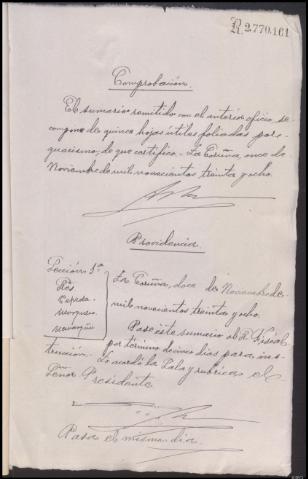 R.2.770.161
Comprobación.
El sumario remitido con el anterior oficio, se
compone de quince hojas útiles foliadas por
guarismo, de que certifico.- La Coruña, once de
Noviembre de mil novecientos treinta y ocho.
Providencia
Sección 1ª
La Coruña, doce de Noviembre de
mil novecientos treinta y ocho.
Pase este sumario al Sr. Fiscal
por término de cinco días para ins-
trucción. Lo acordó la Sala y rubrica el
Señor Presidente
Pasa el mismo día.